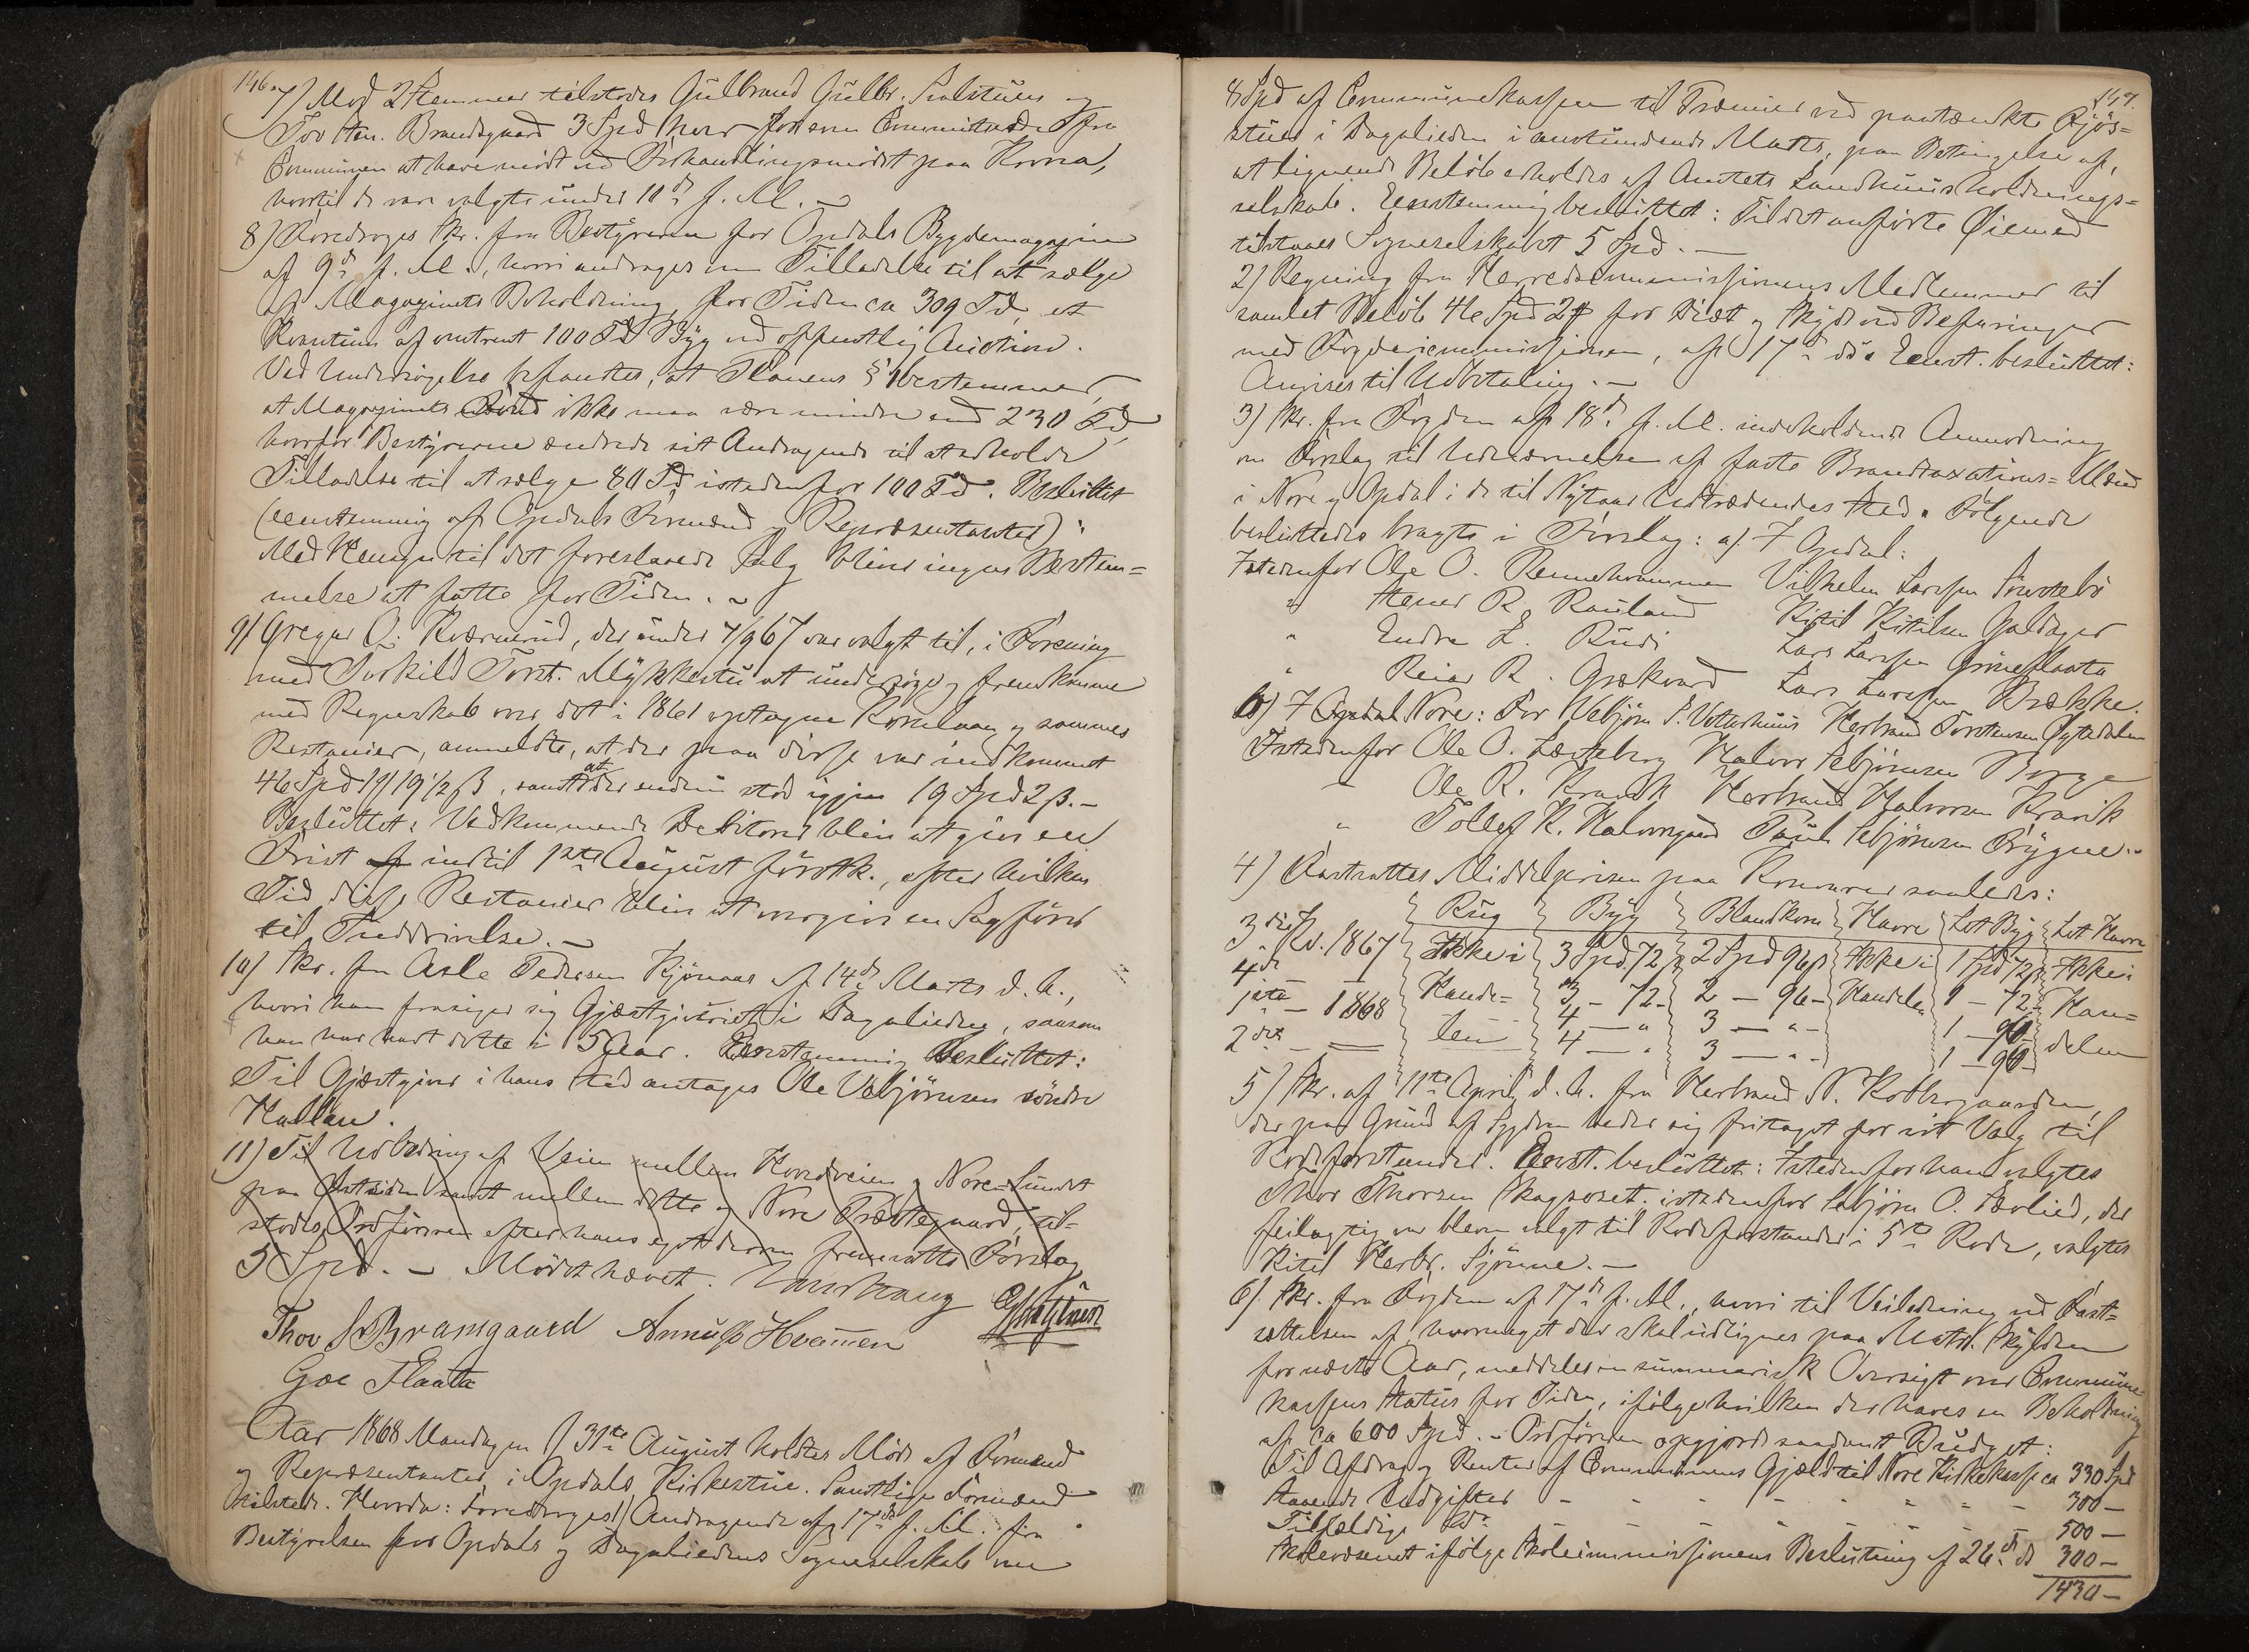 146.
7) Mod 2 Stemmer tilstodes Gulbrand Gulbr. og
Tov Brandsgaard 3 Spd hver for som Committerede fra
Communen at have mödt ved Forhandlingsmödet paa Kovna,
hvortil de vare valgte under 10de f. M. –
8) Foredroges Skr. fra Bestyreren for Opdals Bygdemagazin
af 9de f. M., hvori andrages om Tilladelse til at sælge
af Magazinets Beholdning, for Tiden ca 309 Td, et
Kvantum af omtrent 100 Td Byg ved offentlig Auction.
Ved Undersögelse befandtes, at Planens § 1 bestemmer,
at Magazinets Fond ikke maa være mindre end 230 Td,
hvorfor Bestyrerne ændrede sit Andragende til at erholde
Tilladelse til at sælge 80 Td istedenfor 100 Td. Besluttet
(eenstemmig af Opdals Formænd og Repræsentanter):
Med Hensyn til det foreslaaede Salg bliver ingen Bestem=
melse at fatte for Tiden. –
9) Gregar O. Kværnerud, der under 7/9 67 var valgt til, i Forening
med Torkild Torst. Mykkestu at undersöge og fremkomme
med Regnskab over det i 1861 optagne Kornlaan og sammes
Restancier, anmeldte, at der paa disse var indkommet
46 Spd 1 19 1/2 ß, samt at der endnu stod igjen 19 Spd 2 ß. –
Besluttet: Vedkommende Debitorer bliver at give en
Frist af indtil 1ste August förstk., efter hvilken
Tid disse Restancier bliver at overgives en Sagförer
til Inddrivelse. –
10) Skr. fra Asle Pedersen Kjönaas af 14de Marts d. A.,
hvori han frasiger sig Gjæstgiveriet i Dagalien, saasom
han har havt dette i 5 Aar. Eenstemmig Besluttet:
Til Gjæstgiver i hans Sted antages Ole Vebjörnsen söndre
Hallan.
11) Til Udbedring af Veien mellem Hovedveien og Nore=Sundet
paa Östsiden samt mellem dette og Nore Præstegaard, til=
stodes Ordföreren efter hans eget derom fremsatte Forslag
5 Spd. – Mödet hævet.
Thov Bramsgaard Hvammen
Goe Flaata
Aar 1868 Mandagen d 31te August holdtes Möde af Formænd
og Repræsentanter i Opdals Kirkestue. Samtlige Formænd
tilstede. Hvorda: Foredroges 1) Andragende af 17de f. M. fra
Bestyrelsen for Opdals og Dagaliedens Sogneselskab om
147.
8 Spd af Communekassen til Præmier ved paatænkte Fjös=
stuer i Dagalieden i anstundende Marts, paa Betingelse af,
at lignende Belöb erholdes af Amtets Landhuusholdnings=
selskab. Eenstemmig besluttet: Til det anförte Öiemed
tilstaaes Sogneselskabet 5 Spd. –
2) Regning fra Herredscommissionens Medlemmer til
samlet Belöb 46 Spd 2 for Diæt og Skyds ved Befaringer
med Fogdericommissionen, af 17de ds. Eenst. besluttet:
Anvises til Udbetaling. –
3) Skr. fra Fogden af 18de f. M. indeholdende Anmodning
om Forslag til Udnævnelse af faste Brandtaxations=Mænd
i Nore og Opdal i de til Nytaar Udtrædendes Sted. Fölgende
besluttedes bragte i Forslag: a) I Opdal:
Istedenfor Ole O. Rennehvammen Vilhelm Larssen
" Stener R. Rauland Kitil Kitilsen Galdager
" Endre L. Rudi Lars Larssen Gröneflaata
" Reiar R. Grækvard Lars Larssen Brække.
b) I Opdal Nore: For Vebjörn S. Herbrand Torstensen Öytedalen
Istedenfor Ole O. Halvor Sebjörnsen Borge
" Ole R. Kravik Herbrand Halvorsen Kravik
" Tollef K. Paul Sebjörnsen Brygne. –
4) Fastsattes Middelprisen paa Kornvarer saaledes:
Rug Byg Blandkorn Havre Let Byg Let Havre
3die Kv. 1867 Ikke i 3 Spd. 72 ß 2 Spd 96 ß Ikke i 1 Spd 72 ß Ikke i
4de – Hande= 3 – 72 – 2 – 96 – Handelen 1 – 72 – Han=
1ste – 1868 len 4 – " 3 – " – 1 – 90 – delen
2det – – 4 – " 3 – " – 1 – 90 –
5) Skr. af 11te April d. A. fra Herbrand N. Kolbrgaarden,
der paa Grund af Sygdom beder sig fritaget for sit Valg til
Rodeforstander. Eenst. besluttet: Istedenfor ham valgtes
Thor Thorsen Skagsoset. istedenfor Sebjörn O. Sevlied, der
feilagtig var bleven valgt til Rodeforstander i 5te Rode, valgtes
Kitil Herbr. Sjönne. –
6) Skr. fra Fogden af 17de f. M., hvori til Veiledning ved Fast=
sættelsen af, hvormeget der skal udlignes paa Matr. Skylden
for næste Aar, meddeles en summarisk Oversigt over Commune=
kassens Status for Tiden, ifölge hvilken der haves en Beholdning
af ca 600 Spd. – Ordföreren opgjorde saadant Budget:
Til Afdrag og Renter af Communens Gjæld til Nore Kirkekasse ca 330 Spd
Staaende Udgifter – – – – – – – 300 –
Tilfældige do – – – – – – – 500 –
Skolevæsenet ifölge Skolecommissionens Beslutning af 26de ds 300 –
1430 –